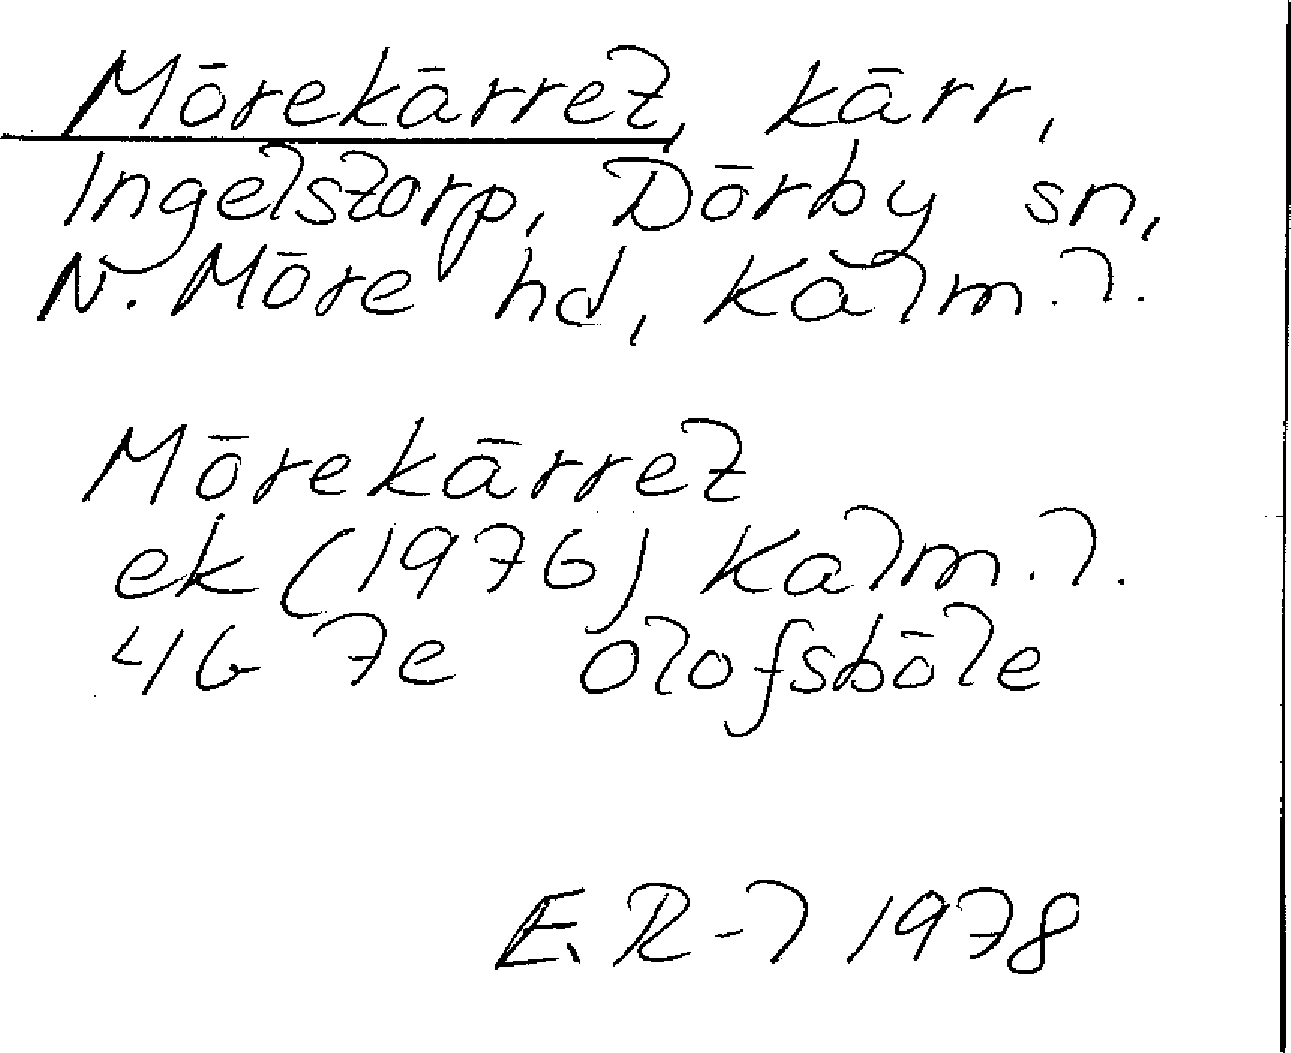 Mörekärret, kärr,
Ingelstorp, Dörby sn,
N. Möre hd, Kalm. l.
Mörekärret
ek (1976) Kalm. l.
4G 7e Olofsböle
E. R-l 1978